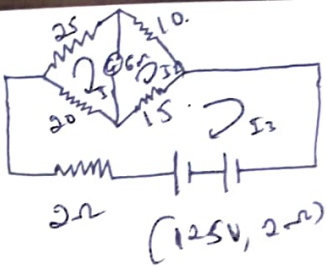 25
10.
G 6Ω
I
I2
20
15
I3
2Ω
(125V, 2Ω)